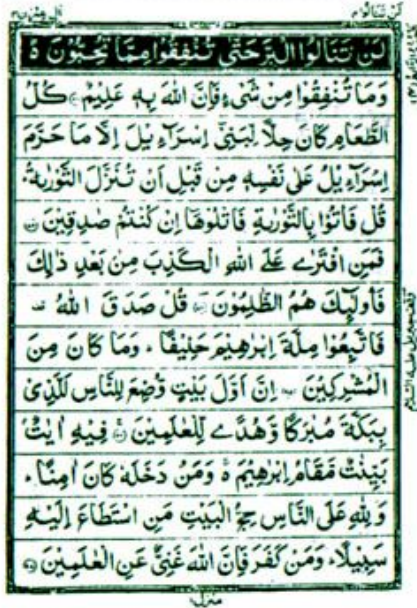 لن تنالوا ٤
اٰل عمرٰن ٣
لَنْ تَنَالُوا الْبِرَّ حَتّٰى تُنْفِقُوْا مِمَّا تُحِبُّوْنَ ۬ؕ
وَمَا تُنْفِقُوْا مِنْ شَیْءٍ فَاِنَّ اللّٰهَ بِهٖ عَلِیْمٌ ۝ كُلُّ
الطَّعَامِ كَانَ حِلًّا لِّبَنِیْۤ اِسْرَآءِیْلَ اِلَّا مَا حَرَّمَ
اِسْرَآءِیْلُ عَلٰى نَفْسِهٖ مِنْ قَبْلِ اَنْ تُنَزَّلَ التَّوْرٰىةُ ؕ
قُلْ فَاْتُوْا بِالتَّوْرٰىةِ فَاتْلُوْهَاۤ اِنْ كُنْتُمْ صٰدِقِیْنَ ۝
فَمَنِ افْتَرٰى عَلَى اللّٰهِ الْكَذِبَ مِنْۢ بَعْدِ ذٰلِكَ
فَاُولٰٓىِٕكَ هُمُ الظّٰلِمُوْنَ ۝ قُلْ صَدَقَ اللّٰهُ ۫
فَاتَّبِعُوْا مِلَّةَ اِبْرٰهِیْمَ حَنِیْفًا ؕ وَمَا كَانَ مِنَ
الْمُشْرِكِیْنَ ۝ اِنَّ اَوَّلَ بَیْتٍ وُّضِعَ لِلنَّاسِ لَلَّذِیْ
بِبَكَّةَ مُبٰرَكًا وَّهُدًى لِّلْعٰلَمِیْنَ ۝ فِیْهِ اٰیٰتٌۢ
بَیِّنٰتٌ مَّقَامُ اِبْرٰهِیْمَ ۬ۚ وَمَنْ دَخَلَهٗ كَانَ اٰمِنًا ؕ
وَلِلّٰهِ عَلَى النَّاسِ حِجُّ الْبَیْتِ مَنِ اسْتَطَاعَ اِلَیْهِ
سَبِیْلًا ؕ وَمَنْ كَفَرَ فَاِنَّ اللّٰهَ غَنِیٌّ عَنِ الْعٰلَمِیْنَ ۝
منزل ١